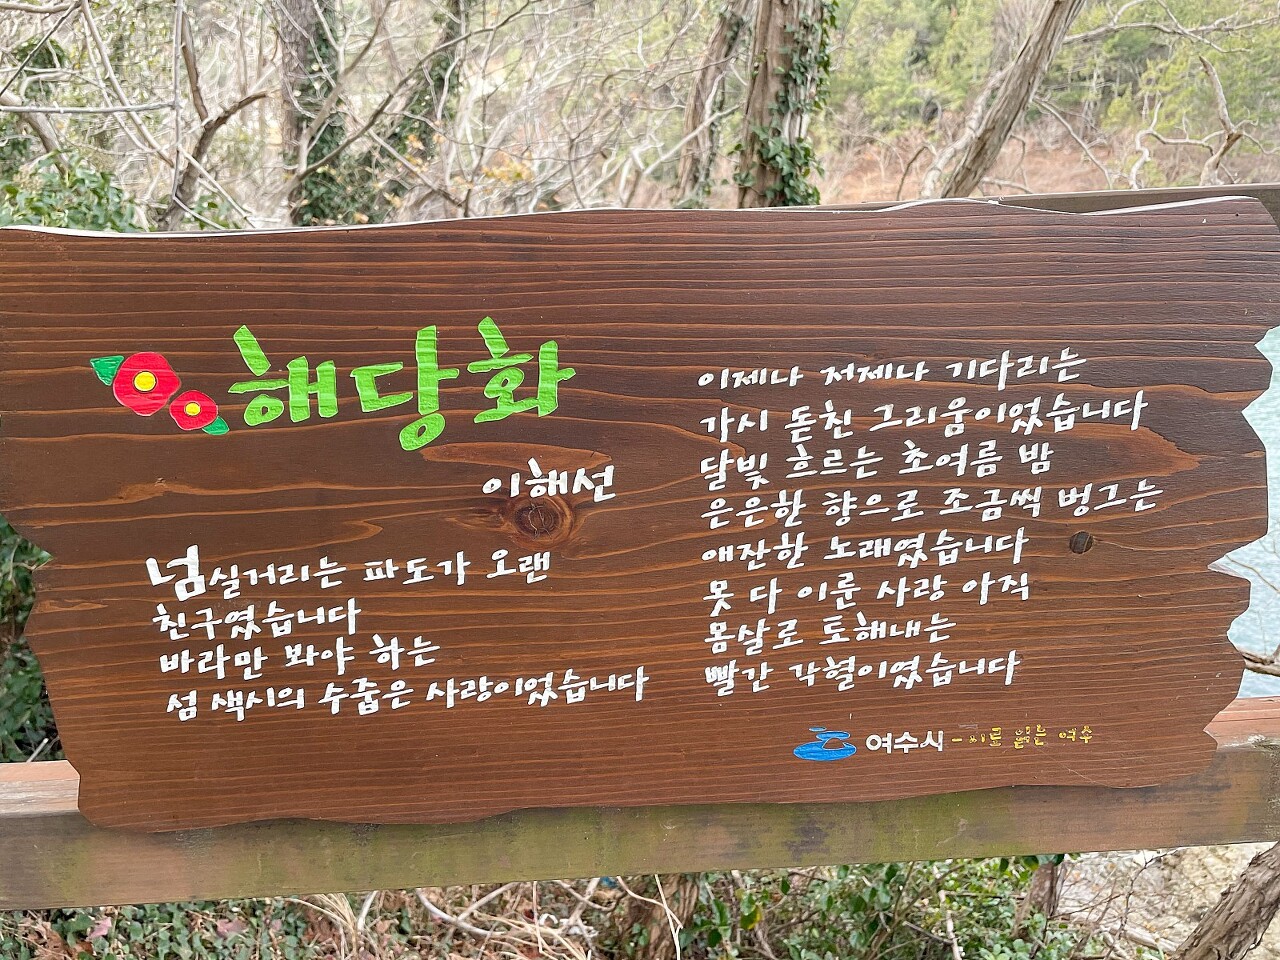 해당화
이해선
넘실거리는 파도가 오랜
친구였습니다
바라만 봐야 하는
섬 색시의 수줍은 사랑이었습니다
이제나 저제나 기다리는
가시 돋친 그리움이었습니다
달빛 흐르는 초여름 밤
은은한 향으로 조금씩 벙그는
애잔한 노래였습니다
못 다 이룬 사랑 아직
몸살로 토해내는
빨간 각혈이였습니다
여수시 - 시로 읽는 여수